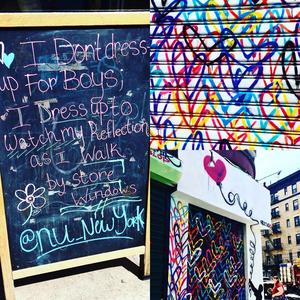 I Dont dress
up For Boys;
I Dress up to
watch my Reflection
as I walk
by store
windows
@nu_New York
Love